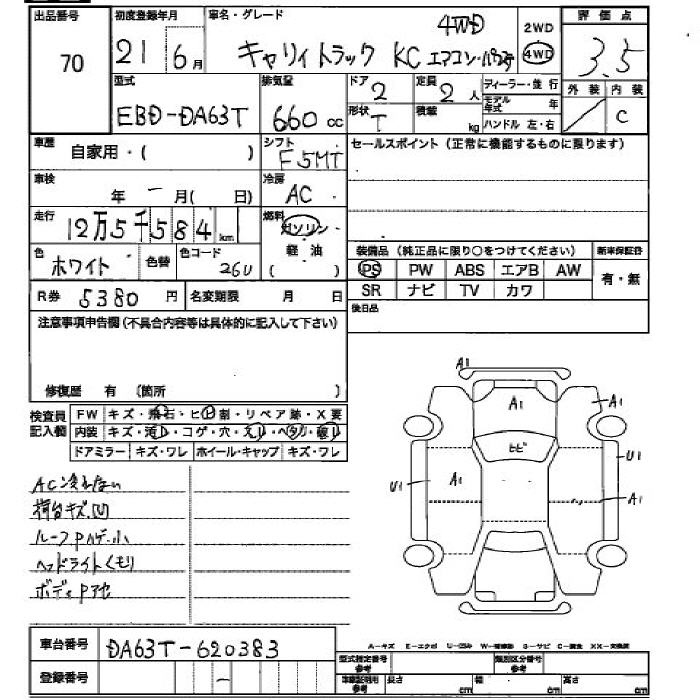 出品番号 70
初度登録年月 21 6月
車名・グレード 4WD
キャリイトラック KC エアコン・パワステ
2WD
4WD
評価点 3.5
外装 内装 C
型式 EBD-DA63T
排気量 660 cc
ドア 2
形状 T
定員 2人
積載 kg
ディーラー・並行
モデル年式 年
ハンドル 左・右
車歴 自家用・( )
シフト F5MT
セールスポイント (正常に機能するものに限ります)
車検 年 - 月( 日)
冷房 AC
走行 12万5千584 km
燃料 ガソリン
軽油
( )
色 ホワイト 色替
色コード 26U
装備品 (純正品に限り○をつけてください)
新車保証書
PS PW ABS エアB AW
有・無
SR ナビ TV カワ
R券 5380 円 名変期限 月 日
後日品
注意事項申告欄(不具合内容等は具体的に記入して下さい)
修復歴 有 (箇所 )
検査員記入欄
FW キズ・飛石・ヒビ割・リペア跡・X要
内装 キズ・汚レ・コゲ・穴・スレ・ヘタリ・破レ
ドアミラー キズ・ワレ ホイール・キャップ キズ・ワレ
AC冷えない
荷台キズ凹
ルーフPハゲ小
ヘッドライトくもり
ボディPアセ
A1
A1
A1
ヒビ
U1
A1
U1
A1
車台番号 DA63T-620383
登録番号 -
A-キズ E-エクボ U-凹み W-補修跡 S-サビ C-腐食 XX-交換済
型式指定番号 参考
類別区分番号 参考
車庫証明用 参考
長さ cm 幅 cm 高さ cm